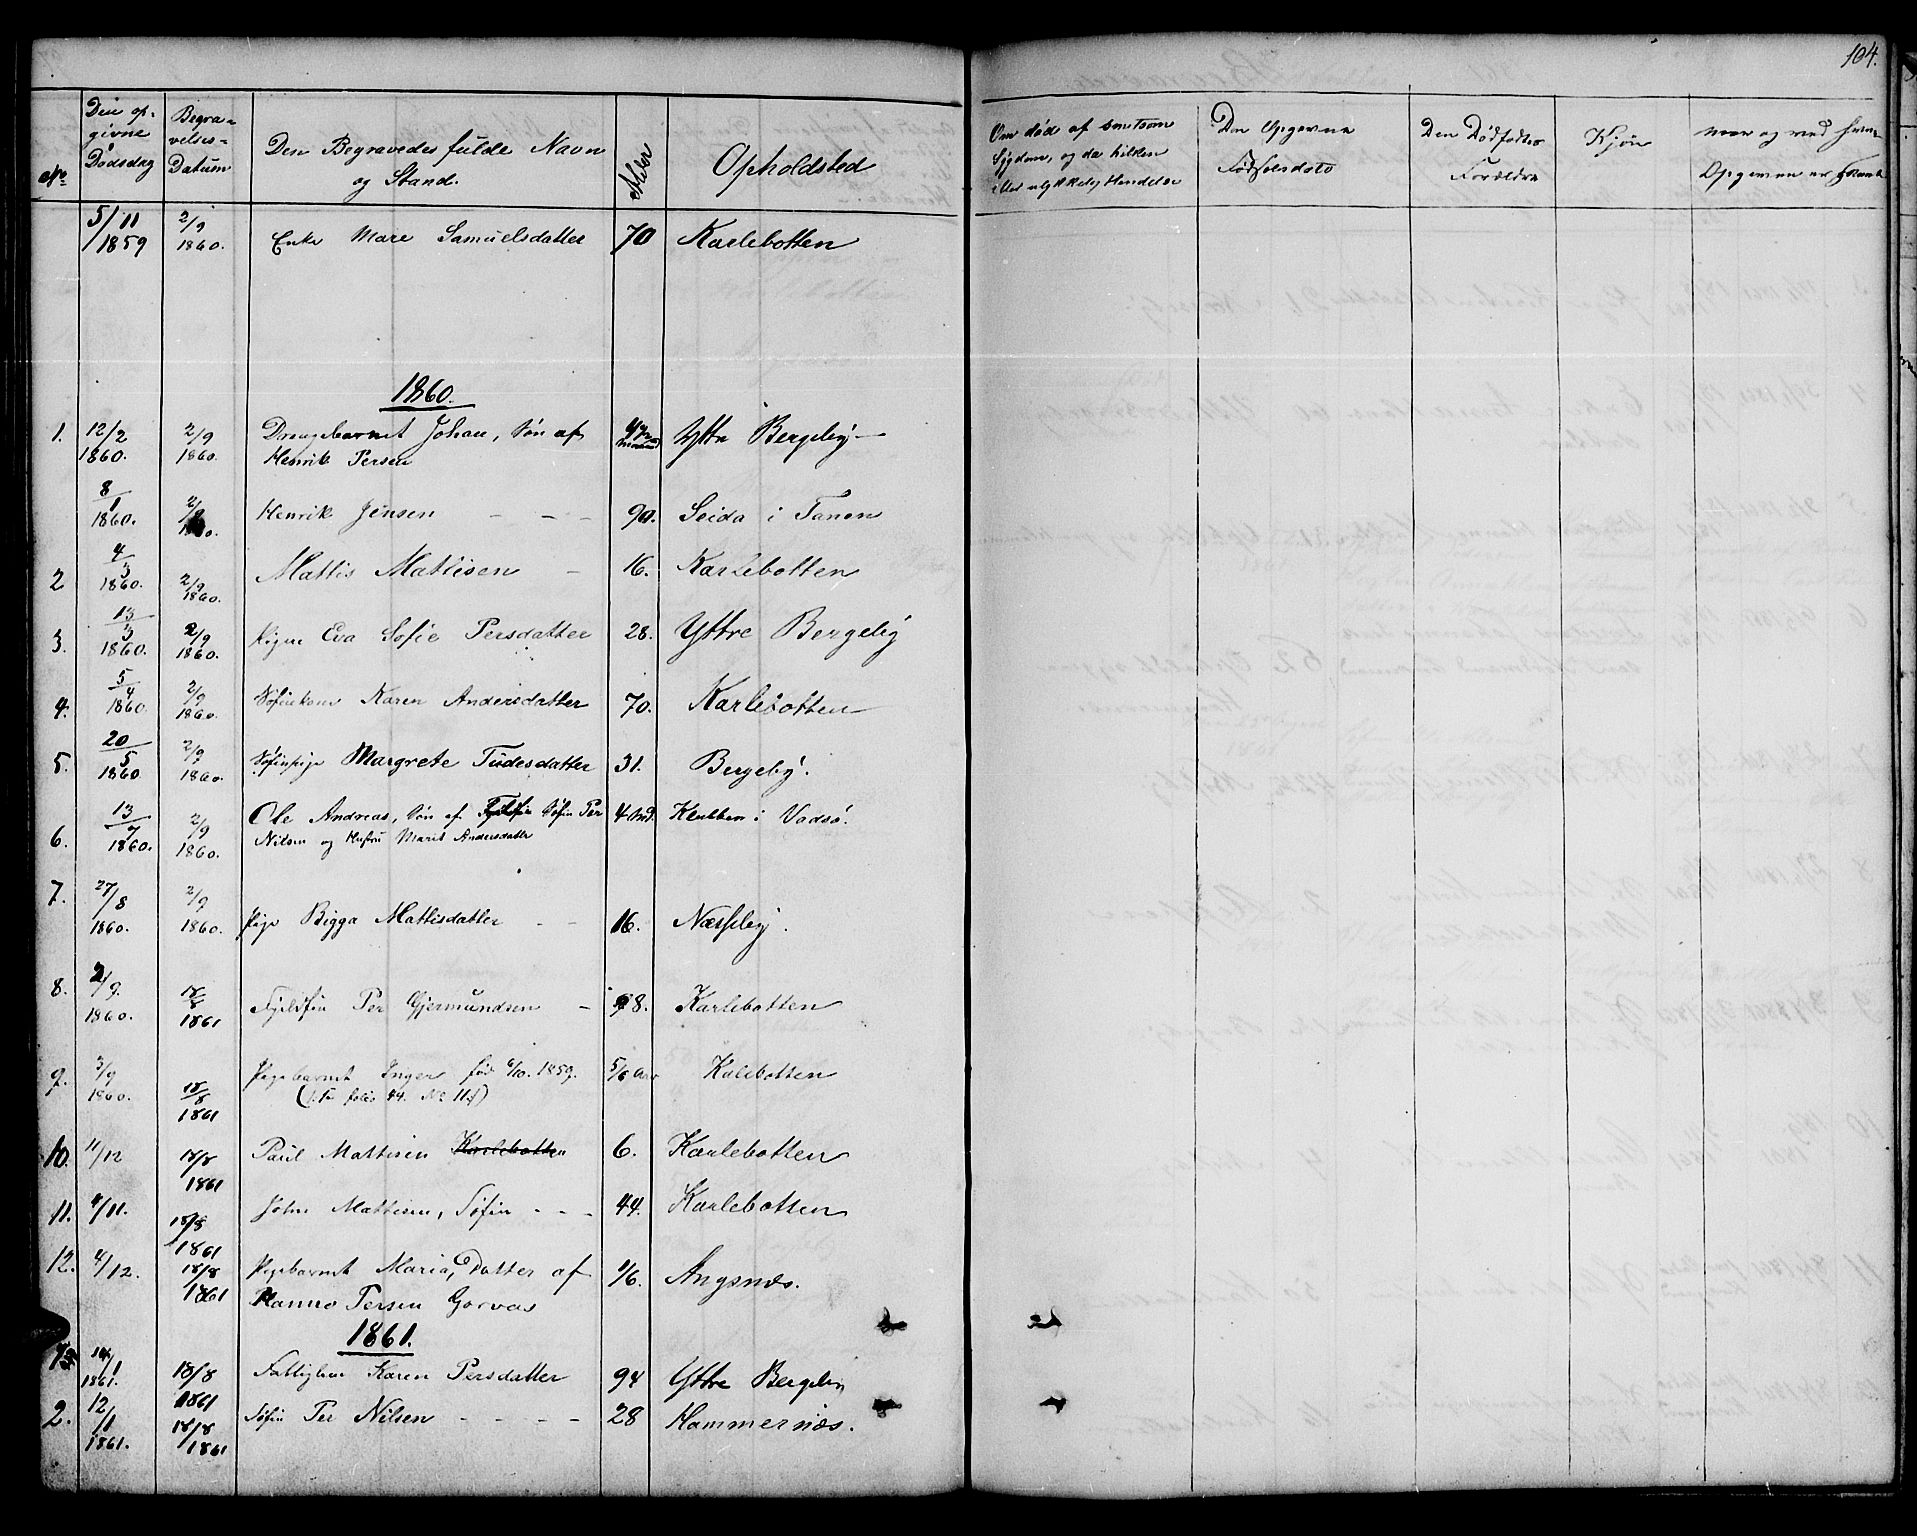 104.
No
Den op-
givne
Dødsdag
Begra-
velses-
Datum
Den Begravedes fulde Navn
og Stand.
Alder
Opholdsted
Om død af smitsom
Sygdom, og da hvilken
eller ulykkelig Hændelse
Den Opgivne
Fødselsdato
Den Dødfødtes
Forældre
Kjøn
naar og ved hvem
Opgivne er
5/11 1859 2/9 1860. Enke Mare Samuelsdatter 70 Karlebotten
1860.
1. 12/2 1860. 2/9 1860. Drengebarnet Johan, Søn af
Henrik Persen Yttre Bergeby
8/1 1860. 2/9 1860. Henrik Jensen - - - 90. Seida i Tanen
2 4/3 1860. 2/9 1860. Mattis Mattisen - 16. Karlebotten
3. 13/3 1860. 2/9 1860. Pigen Eva Sofie Persdatter 28. Yttre Bergeby
4. 5/4 1860. 2/9 1860. Søfinkone Karen Andersdatter 70. Karlebotten
5. 20/5 1860 2/9 1860. Søfinpige Margrete Tudesdatter 31. Bergeby.
6. 13/7 1860. 2/9 1860. Ole Andreas, Søn af Fjeldfin Søfin Per
Nilsen og Hustru Marit Andersdatter 4 Md. Klubben i Vadsø.
7. 27/8 1860. 2/9 1860. Pige Bigga Mattisdatter - - 16. Næsseby.
8. 2/9. 1860. 18/8 1861 Fjeldfin Per Gjermundsen - 98. Karlebotten
9. 3/9 1860. 18/8 1861 Pigebarnet Inger fød 6/10. 1859. 5/6 Aar Kalebotten
(folio 44. No 11)
10. 11/12 18/8 1861 Paul Mattisen Karlebotten 6. Karlebotten
11. 4/11. 18/8 1861 John Mattisen, Søfin - - - 44. Karlebotten
12. 4/12. 18/8 1861 Pigebarnet Maria, Datter af
Hanno Persen Gorvas 1/6. Angsnæs.
1861.
1861. 18/8 1861 Fattiglem Karen Persdatter 94 Yttre Bergeby
2. 12/1 1861. 18/8 1861 Søfin Per Nilsen - - - - 28 Hammernæs.